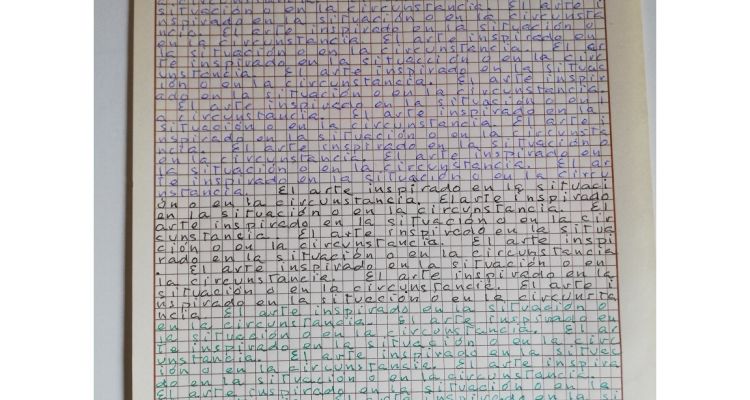 situación o en la circunstancia. El arte i
nspirado en la situación o en la circunsta
ncia. El arte inspirado en la situación o
en la circunstancia. El arte inspirado en
la situación o en la circunstancia. El ar
te inspirado en la situacción o en la circ
unstancia. El arte inspirado en la situac
ión o en la circunstancia. El arte inspir
ado en la situación o en la circunstancia.
El arte inspirado en la situación o en l
a circunstancia. El arte inspirado en la
situación o en la circunstancia. El arte i
nspirado en la situación o en la circunsta
ncia. El arte inspirado en la situación o
en la circunstancia. El arte inspirado en
la situación o en la circunstancia. El ar
te inspirado en la situación o en la circu
nstancia. El arte inspirado en la situaci
ón o en la circunstancia. El arte inspirado
en la situación o en la circunstancia. El
arte inspirado en la situación o en la cir
cunstancia. El arte inspirado en la situa
ción o en la circunstancia. El arte inspi
rado en la situación o en la circunstancia
. El arte inspirado en la situación o en
la circunstancia. El arte inspirado en la
situación o en la circunstancia. El arte i
nspirado en la situccion o en la circunsta
ncia. El arte inspirado en la situación o
en la circunstancia. El arte inspirado en
la situación o en la circunstancia. El ar
te inspirado en la situación o en la circ
unstancia. El arte inspirado en la situac
ión o en la circunstancia. El arte inspira
do en la situación o en la circunstancia.
El arte inspirado en la situación o en la